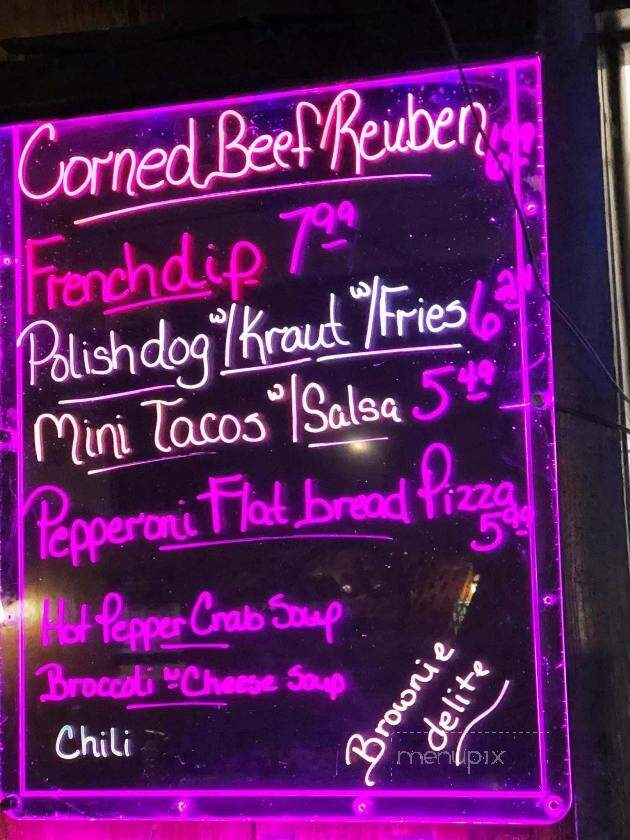 Corned Beef Reuben
French dip 7.99
Polish dog w/Kraut w/Fries 6
Mini Tacos w/Salsa 5.49
Pepperoni Flat bread Pizza
5.99
Hot Pepper Crab Soup
Broccoli w Cheese Soup
Chili
Brownie
delite
menupix